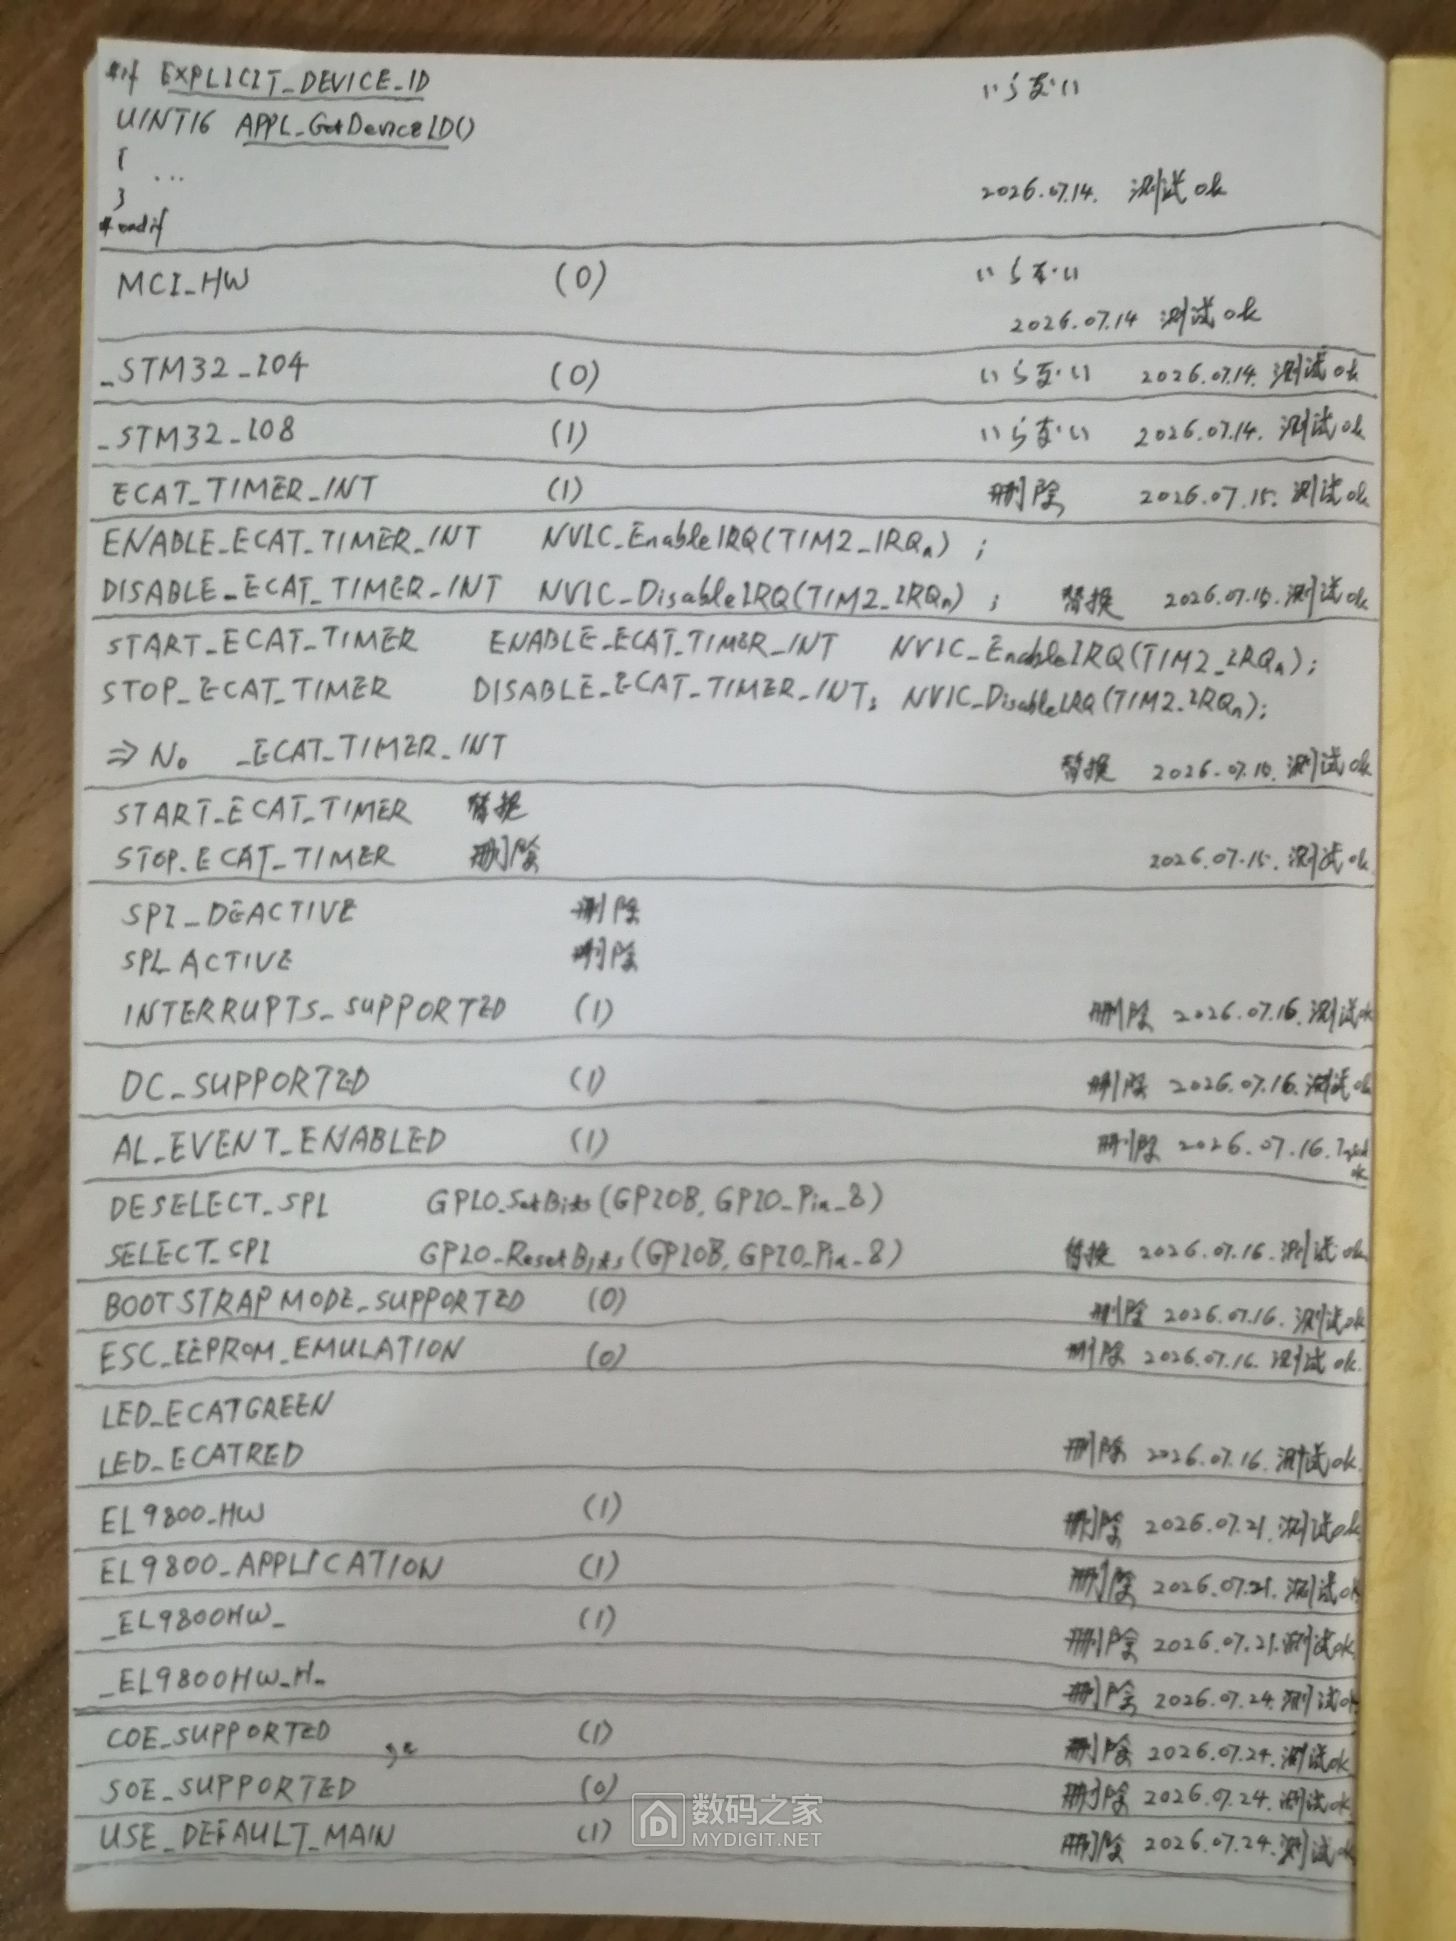 #if EXPLICIT_DEVICE_ID いらない
UINT16 APPL_GetDeviceID()
{ ...
} 2026.07.14. 测试ok
#endif
MCI_HW (0) いらない
2026.07.14 测试ok
_STM32_IO4 (0) いらない 2026.07.14. 测试ok
_STM32_IO8 (1) いらない 2026.07.14. 测试ok
ECAT_TIMER_INT (1) 删除 2026.07.15. 测试ok
ENABLE_ECAT_TIMER_INT NVIC_EnableIRQ(TIM2_IRQn) ;
DISABLE_ECAT_TIMER_INT NVIC_DisableIRQ(TIM2_IRQn) ; 替换 2026.07.15. 测试ok
START_ECAT_TIMER ENABLE_ECAT_TIMER_INT NVIC_EnableIRQ(TIM2_IRQn);
STOP_ECAT_TIMER DISABLE_ECAT_TIMER_INT; NVIC_DisableIRQ(TIM2_IRQn);
⇒ No _ECAT_TIMER_INT 替换 2026.07.15. 测试ok
START_ECAT_TIMER 替换
STOP_ECAT_TIMER 删除 2026.07.15. 测试ok
SPI_DEACTIVE 删除
SPI_ACTIVE 删除
INTERRUPTS_SUPPORTED (1) 删除 2026.07.16. 测试ok
DC_SUPPORTED (1) 删除 2026.07.16. 测试ok
AL_EVENT_ENABLED (1) 删除 2026.07.16. ok
DESELECT_SPI GPIO_SetBits(GPIOB, GPIO_Pin_8)
SELECT_SPI GPIO_ResetBits(GPIOB, GPIO_Pin_8) 替换 2026.07.16. 测试ok
BOOTSTRAPMODE_SUPPORTED (0) 删除 2026.07.16. 测试ok
ESC_EEPROM_EMULATION (0) 删除 2026.07.16. 测试ok.
LED_ECATGREEN
LED_ECATRED 删除 2026.07.16. 测试ok.
EL9800_HW (1) 删除 2026.07.21. 测试ok
EL9800_APPLICATION (1) 删除 2026.07.21. 测试ok
_EL9800HW_ (1) 删除 2026.07.21. 测试ok
_EL9800HW_H_ 删除 2026.07.24. 测试ok
COE_SUPPORTED (1) 删除 2026.07.24. 测试ok
SOE_SUPPORTED (0) 删除 2026.07.24. 测试ok
USE_DEFAULT_MAIN (1) 删除 2026.07.24. 测试ok
数码之家
MYDIGIT.NET